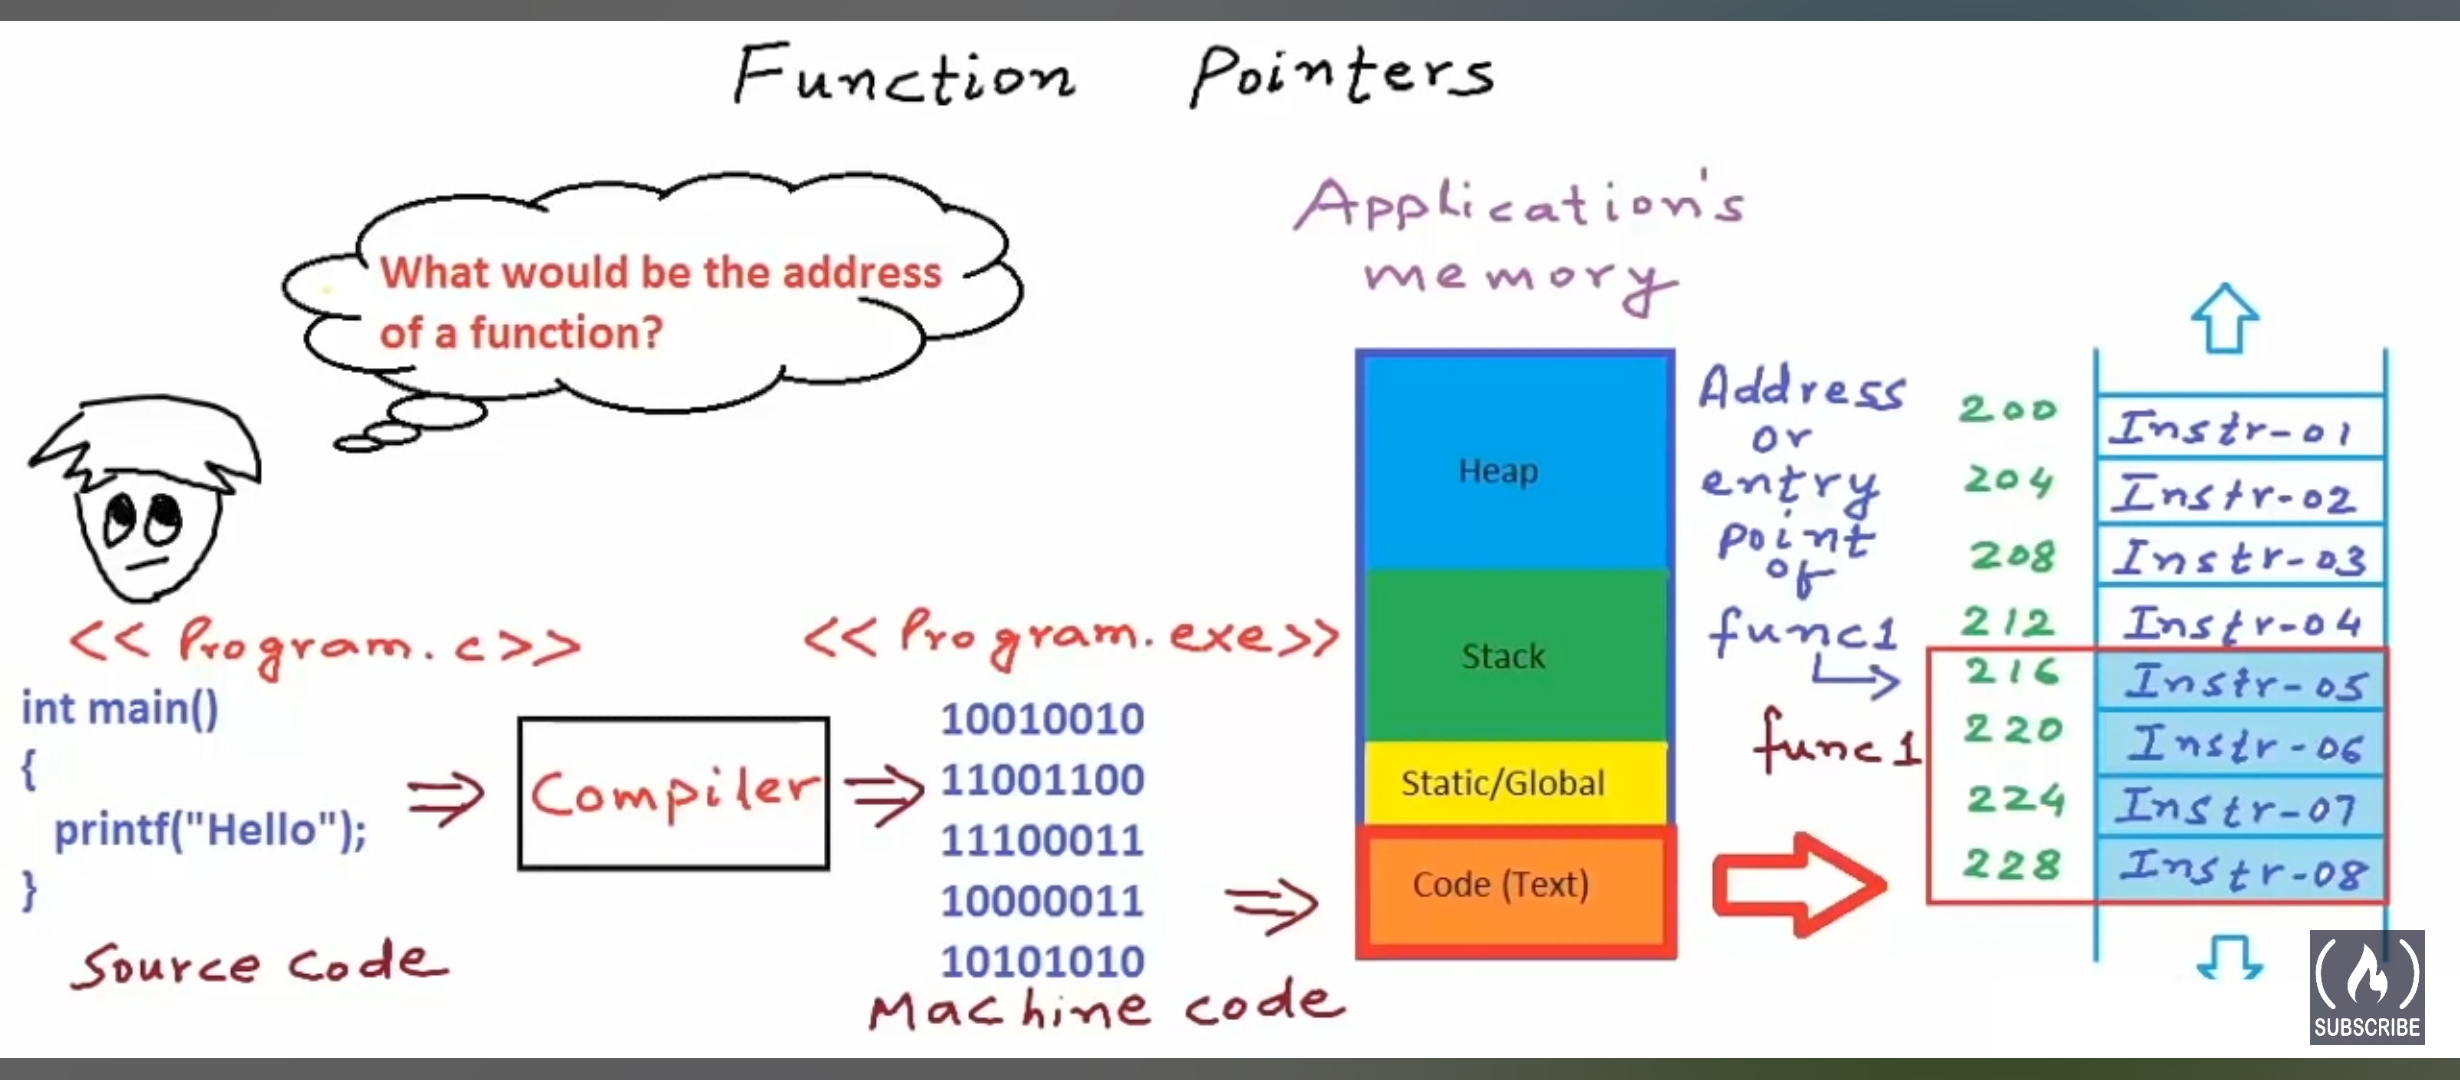 Function Pointers
What would be the address
of a function?
Application's
memory
<< Program.c>>
int main()
{
printf("Hello");
}
Source code
Compiler
<< Program.exe>>
10010010
11001100
11100011
10000011
10101010
Machine code
Heap
Stack
Static/Global
Code (Text)
Address
or
entry
point
of
func1
func1
200 Instr-01
204 Instr-02
208 Instr-03
212 Instr-04
216 Instr-05
220 Instr-06
224 Instr-07
228 Instr-08
SUBSCRIBE